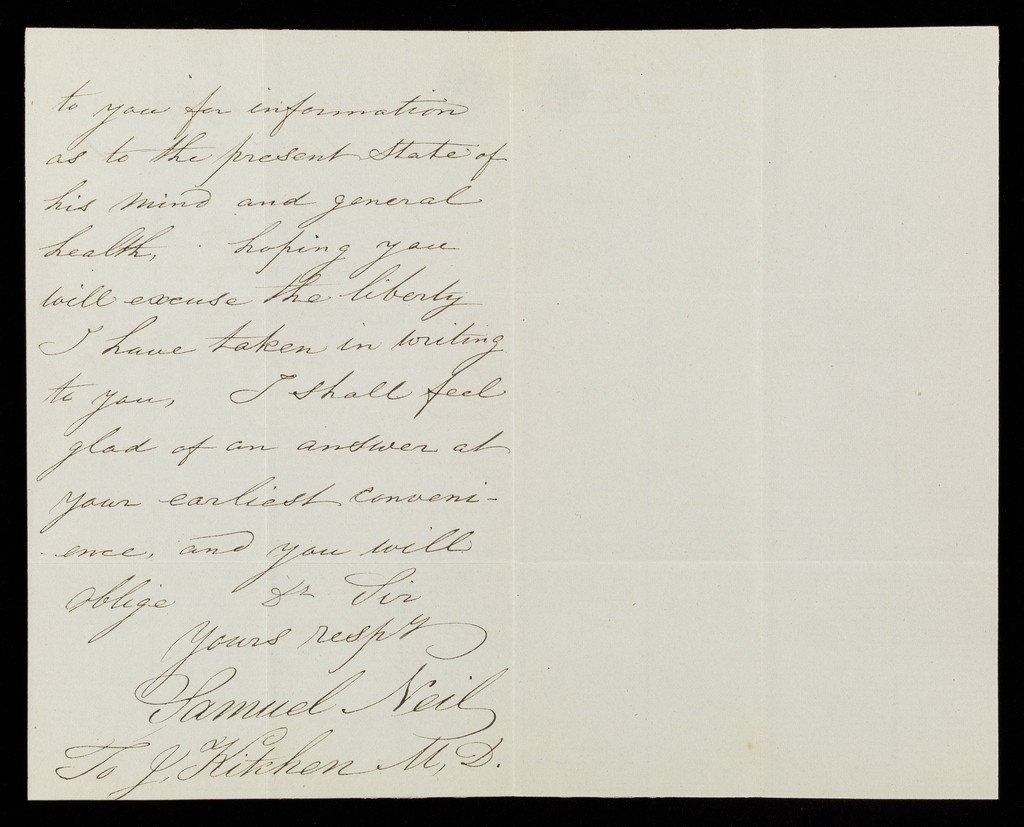 to you for information
as to the present state of
his mind and general
health, hoping you
will excuse the liberty
I have taken in writing
to you, I shall feel
glad of an answer at
your earliest conveni-
-ence, and you will
oblige Dr Sir
yours respy
Samuel Neil
To J, Kitchen M, D.